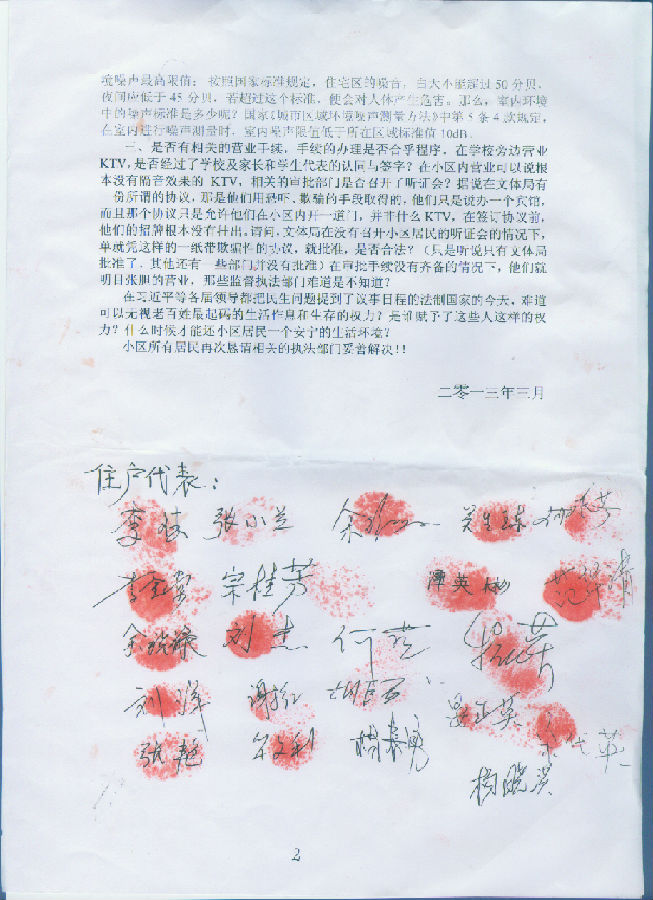 境噪声最高限值：按照国家标准规定，住宅区的噪音，白天不能超过50分贝，
夜间应低于45分贝，若超过这个标准，便会对人体产生危害。那么，室内环境
中的噪声标准是多少呢？国家《城市区域环境噪声测量方法》中第5条4款规定，
在室内进行噪声测量时，室内噪声限值低于所在区域标准值10dB。
三、是否有相关的营业手续，手续的办理是否合乎程序，在学校旁边营业
KTV，是否经过了学校及家长和学生代表的认同与签字？在小区内营业可以说根
本没有隔音效果的 KTV，相关的审批部门是否召开了听证会？据说在文体局有
份所谓的协议，那是他们用恐吓、欺骗的手段取得的，他们只是说办一个宾馆，
而且那个协议只是允许他们在小区内开一道门，并非什么KTV，在签订协议前，
他们的招牌根本没有挂出。请问，文体局在没有召开小区居民的听证会的情况下，
单就凭这样的一纸带欺骗性的协议，就批准，是否合法？（只是听说只有文体局
批准了，其他还有一些部门并没有批准）在审批手续没有齐备的情况下，他们就
明目张胆的营业，那些监督执法部门难道是不知道？
在习近平等各届领导都把民生问题提到了议事日程的法制国家的今天，难道
可以无视老百姓最起码的生活作息和生存的权力？是谁赋予了这些人这样的权
力？什么时候才能还小区居民一个安宁的生活环境？
小区所有居民再次恳请相关的执法部门妥善解决！！
二零一三年三月
住户代表：
张小兰
宗桂芳 谭英
刘杰 何
刘辉
张艳 杨春
杨晓
2